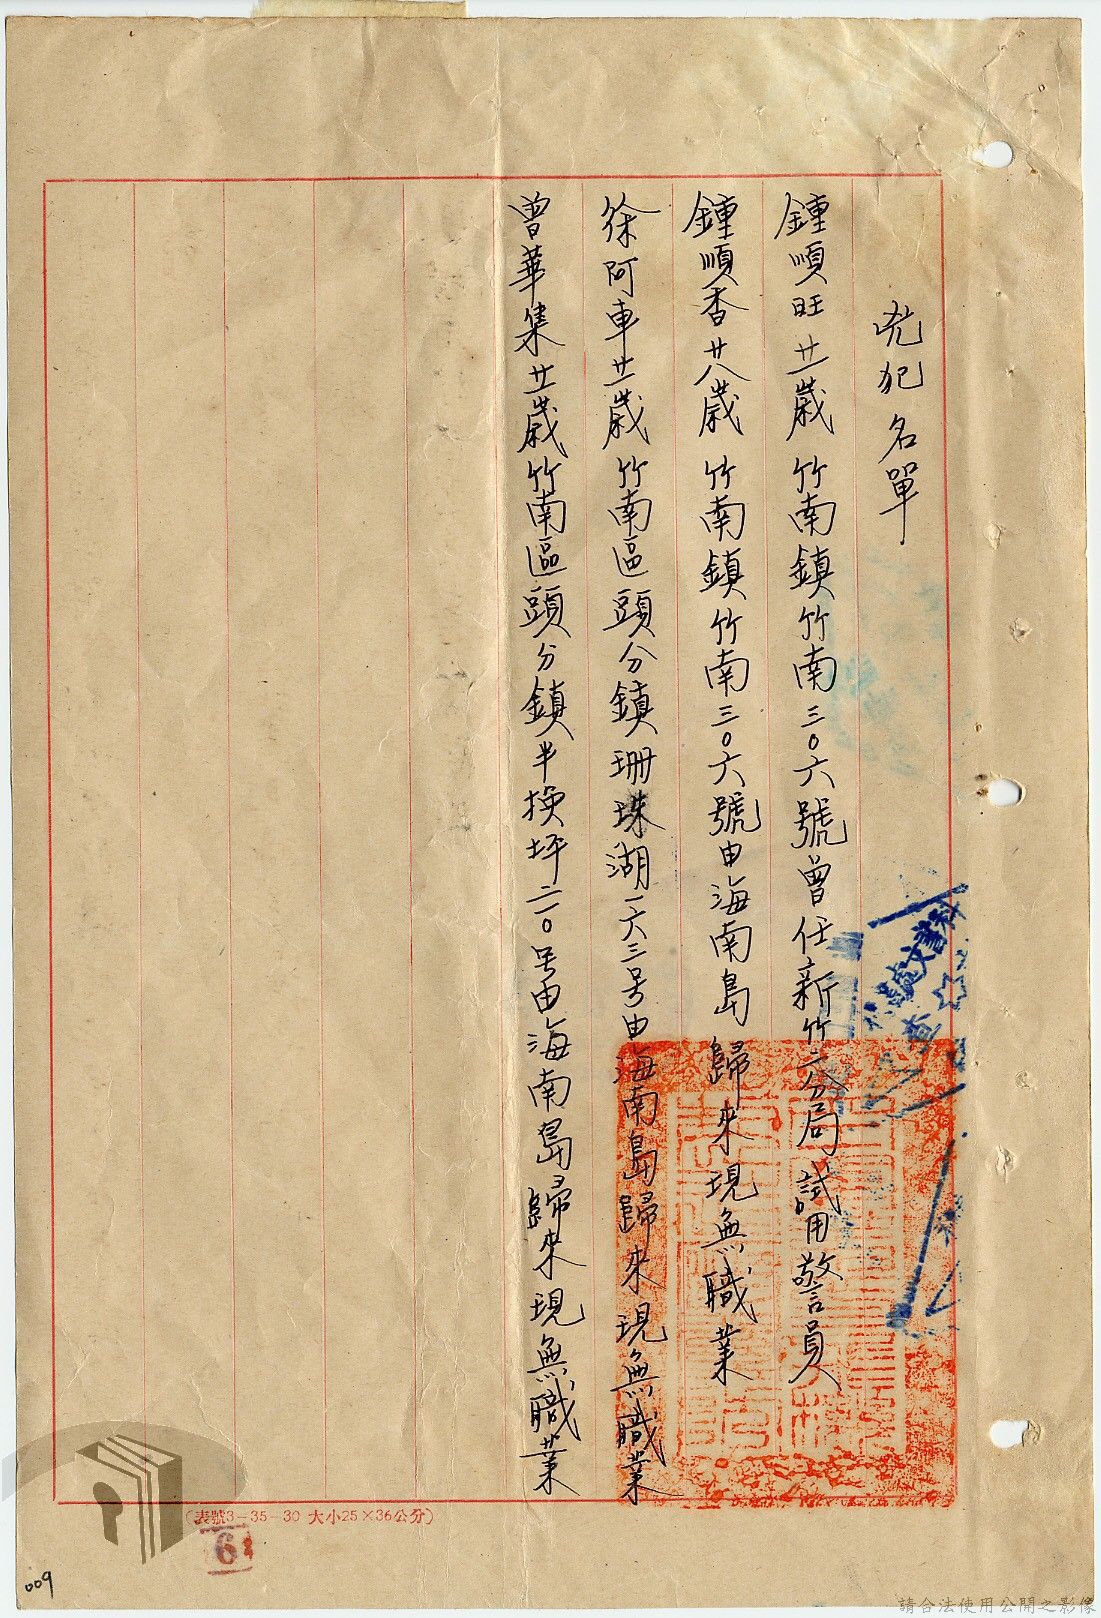 兇犯名單
鍾順旺 廿一歲 竹南鎮竹南三〇六號曾任新竹二分局試用警員
鍾順香 廿八歲 竹南鎮竹南三〇六號由海南島歸來現無職業
徐阿車 廿一歲 竹南區頭分鎮珊珠湖一六三号由海南島歸來現無職業
曾華集 廿一歲 竹南區頭分鎮半換坪二一〇号由海南島歸來現無職業
(表號3-35-30 大小25×36公分)
6
009
請合法使用公開之影像